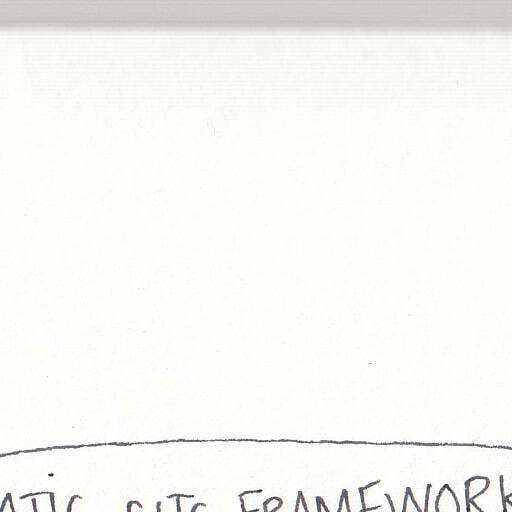 ATIC SITE FRAMEWORK